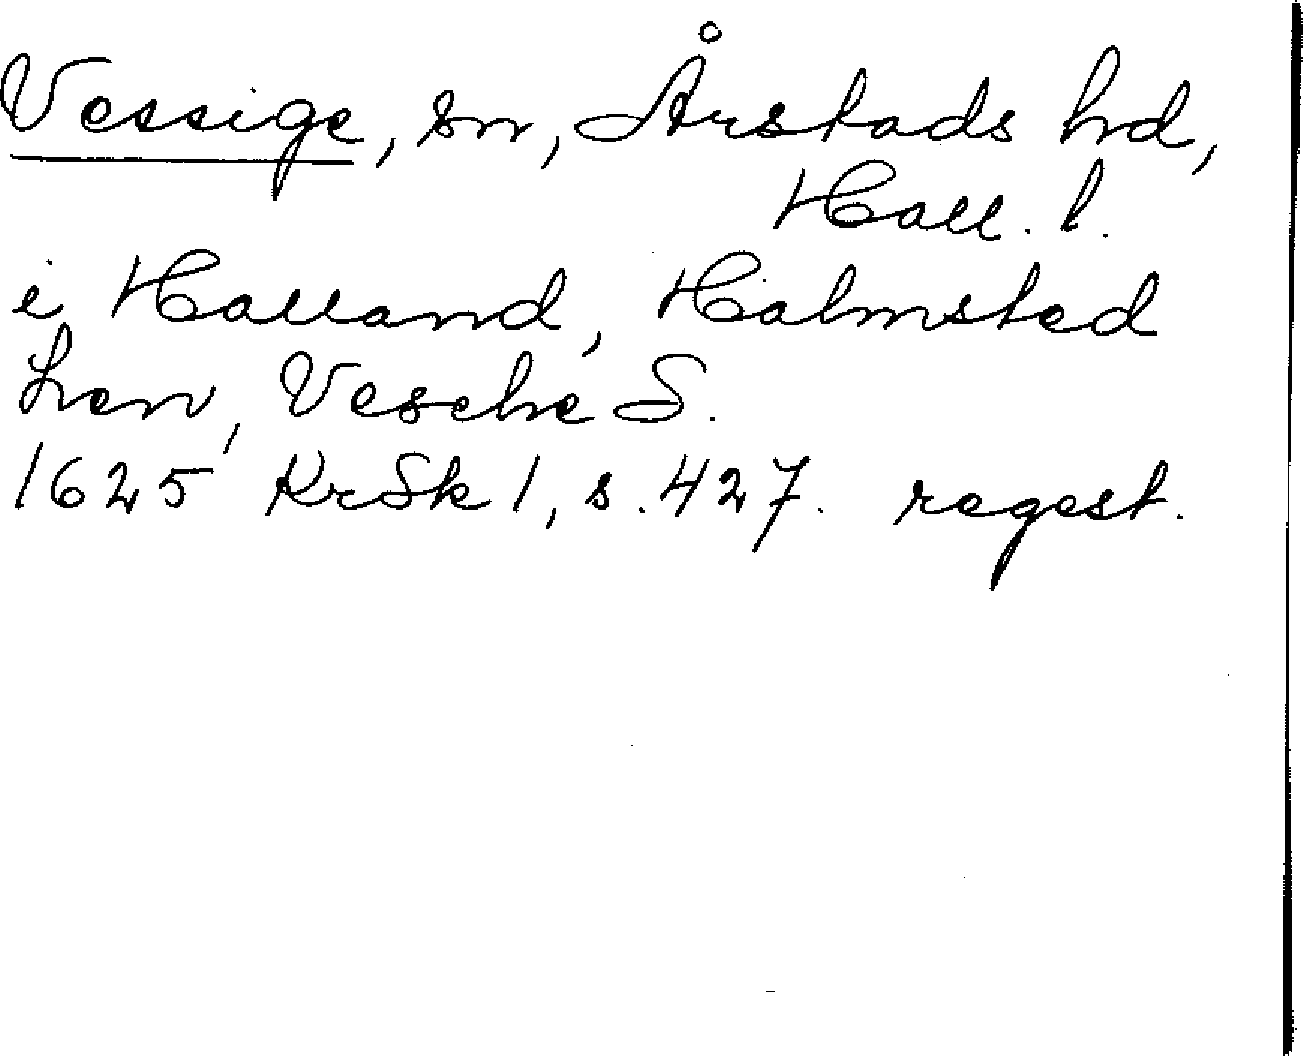 Vessige, sn, Årstads hd,
Hall. l.
i Halland, Halmsted
Len, Vesche S.
1625 KrSk 1, s. 427. regest.